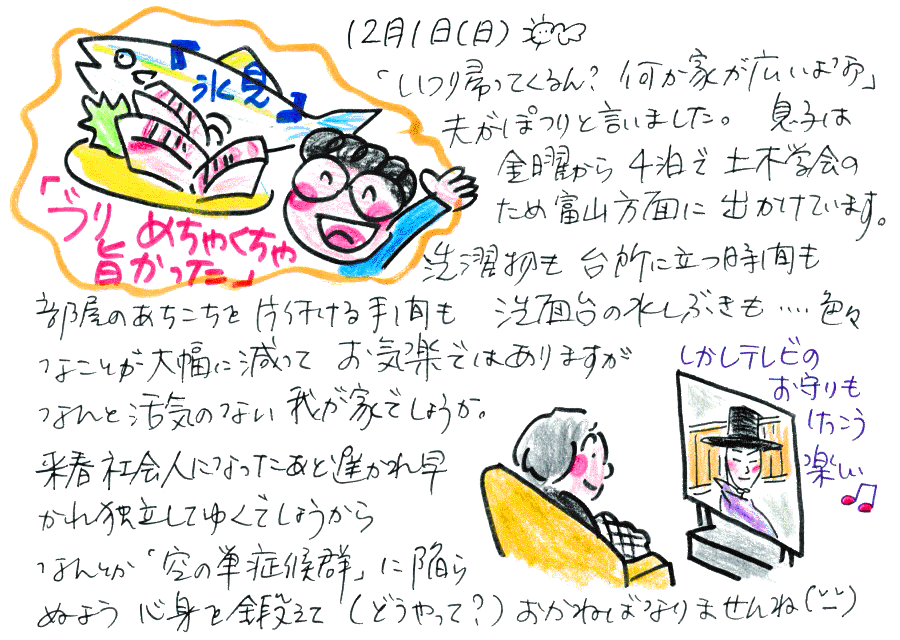 12月1日(日)
「いつ帰ってくるん? 何か家が広いよつ」
夫がぽつりと言いました。 息子は
金曜から 4泊で 土木学会の
ため富山方面に 出かけています。
洗濯物も 台所に立つ時間も
部屋のあちこちを 片付ける手間も 洗面台の水しぶきも…色々
なことが大幅に減って お気楽ではありますが
なんと活気のない我が家でしょうか。
来春社会人になったあと遅かれ早
かれ独立してゆくでしょうから
なんとか「空の巣症候群」に陥ら
ぬよう 心身を鍛えて (どうやって?) おかねばなりませんね
『氷見』
「ブリ めちゃくちゃ
旨かった」
しかしテレビの
お守りも
けっこう
楽しい